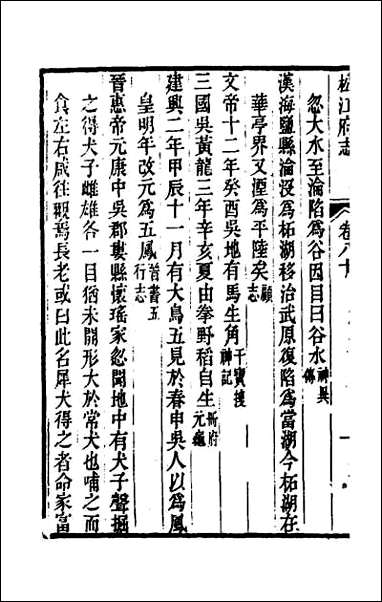 松江府志
卷八十
忽大水至淪陷為谷因目曰谷水神異傳
漢海鹽縣淪沒為柘湖移治武原復陷為當湖今柘湖在
華亭界又湮為平陸矣顧志
文帝十二年癸酉吳地有馬生角干寶搜神記
三國吳黃龍三年辛亥夏由拳野稻自生冊府元龜
建興二年甲辰十一月有大鳥五見於春申吳人以為鳳
皇明年改元為五鳳晉書五行志
晉惠帝元康中吳郡婁縣懷瑤家忽聞地中有犬子聲掘
之得犬子雌雄各一目猶未開形大於常犬也哺之而
食左右咸往觀焉長老或曰此名犀犬得之者命家富